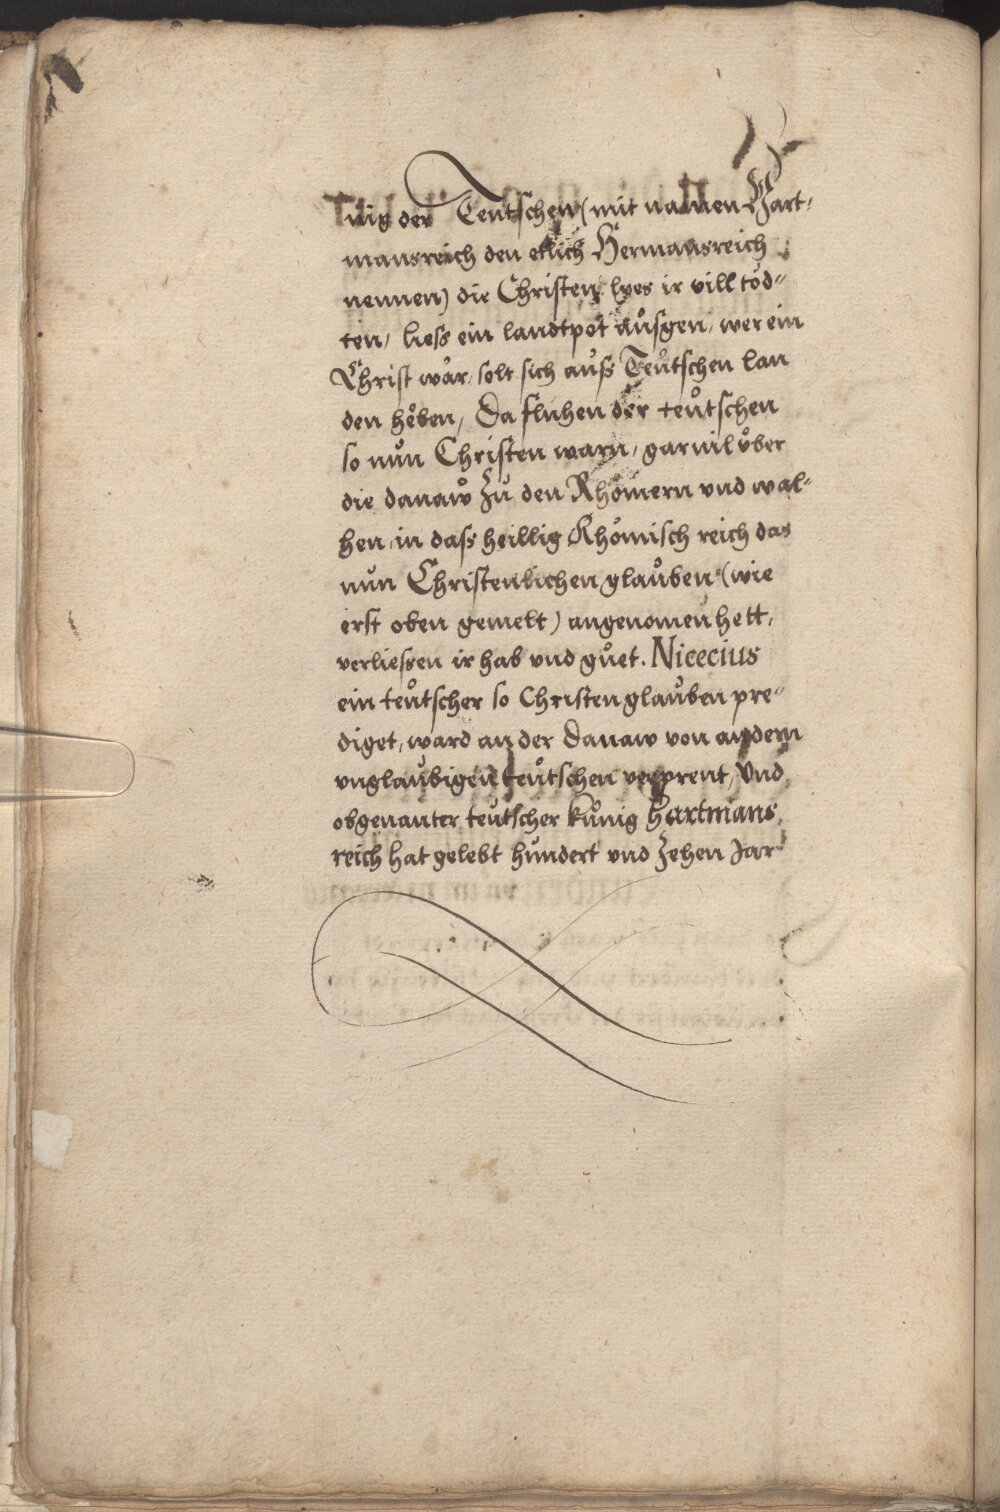 nig der Teutschen (mit namen Hart-
mansreich den etlich Hermansreich
nennen) die Christen lyes ir vill töd-
ten, liess ein landtpot aůsgen, wer ein
Christ wår, solt sich auß Teůtschen lan
den hẻben, Da fluhen der teůtschen
so nůn Christen warn, gar vil ůber
die danaw zů den Rhömern vnd wal-
hen in dass heillig Rhömisch reich das
nůn Christenlichen glaůben (wie
erst oben gemelt) angenomen hett,
verliessen ir hab vnd gůet. Nicecius
ein teůtscher so Christen glaůben pre-
diget, ward an der Danaw von andern
vnglaůbigen teůtschen verprent, Vnd
obgenanter teůtscher kůnig Hartmans
reich hat gelebt hůndert vnd zehen Jar